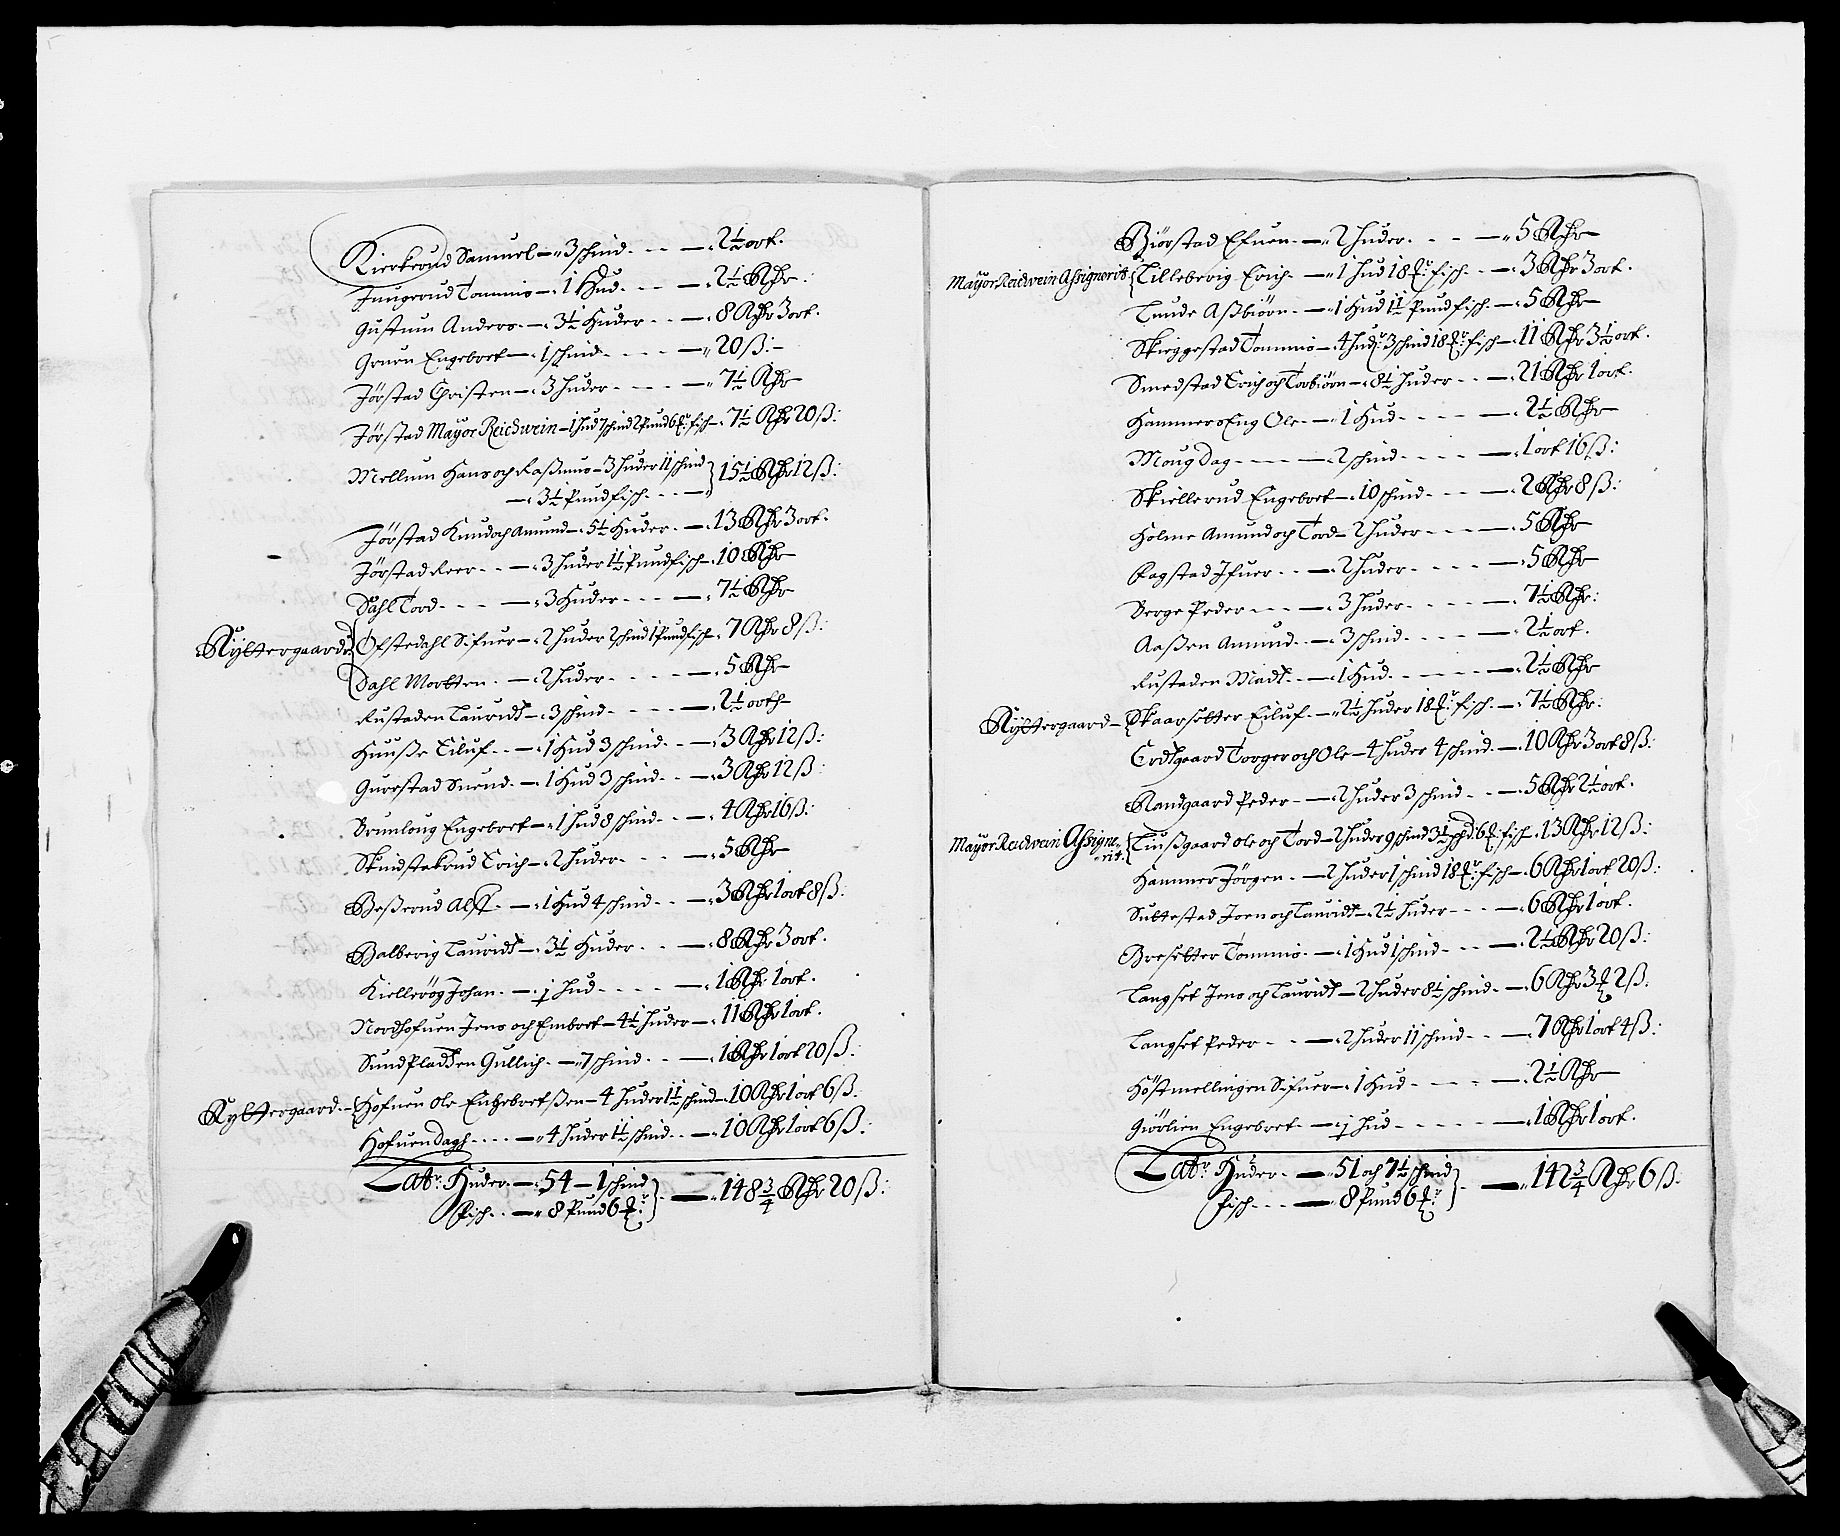 Kierkerud Samuel — 3 schind - - — 2½ ort.
Jnngerud Tommis — 1 Hud - - — 2½ Rdr
Gustum Anders — 3½ Huder - - — 8 Rdr 3 ort.
Gruen Engebret — 1 schind - - - — 20 ß:
Jörstad Christen — 3 huder - - - — 7½ Rdr
Jörstad Mayor Reichwein — 1 hud 7 schind 2 Pund 6 fisch — 7½ Rdr 20 ß:
Mellum Hans och Raßmus — 3 huder 11 schind
— 3½ Pund fisch - - — } 15½ Rdr 12 ß:
Jörstad Knud och Amund — 5½ Huder — 13 Rdr 3 ort.
Jörstad Peer - - — 3 huder 1½ Pund fisch — 10 Rdr
Dahl Tord - - - — 3 Huder - - — 7½ Rdr
Rytttergaarde { Ofstedahl Sifuer — 2 huder 2 schind 1 Pund fisch — 7 Rdr 8 ß:
Dahl Mortten — 2 huder - - - — 5 Rdr
Rustaden Lauridt — 3 schind - - - — 2½ orth
Huuße Eiluf - - — 1 Hud 3 schind - - — 3 Rdr 12 ß:
Gurestad Suend — 1 Hud 3 schind - - — 3 Rdr 12 ß:
Brunloug Engebret — 1 hud 8 schind - - — 4 Rdr 16 ß:
Skindstakrud Erich — 2 huder - - — 5 Rdr
Beßerud Alff — 1 Hud 4 schind - - — 3 Rdr 1 ort 8 ß:
Balberig Lauridt — 3½ Huder - - — 8 Rdr 3 ort.
Kiellerög Johan — ½ hud - - - — 1 Rdr 1 ort.
Nordhofuen Jens och Embret — 4½ huder — 11 Rdr 1 ort.
Sund Pladsen Gullich — 7 schind - - — 1 Rdr 1 ort 20 ß:
Ryttergaard — Hofuen Ole Engebretßen — 4 huder 1½ schind — 10 Rdr 1 ort 6 ß.
Hofuen Dagh - - - — 4 huder 1½ schind - - — 10 Rdr 1 ort 6 ß:
Latr: Huder — 54 — 1 schind
Fisch — 8 Pund 6 } — 148¾ Rdr 20 ß:
Biörstad Efuen — 2 huder - - - — 5 Rdr
Mayor Reichwein Assignerit { Lilleberig Erich — 1 hud 18 fisch - - — 3 Rdr 3 ort.
Lunde Aßbiörn — 1 Hud 1½ Pund fisch — 5 Rdr
Skieggestad Tommis — 4 hud 3 schind 18 fisch — 11 Rdr 3½ ort.
Smedstad Erich och Torbiörn — 8½ huder - - — 21 Rdr 1 ort.
Hammers Eng Ole — 1 Hud - - - — 2½ Rdr
Moug Dag — 2 schind - - - — 1 ort 16 ß:
Skiellerud Engebret — 10 schind - - — 2 Rdr 8 ß:
Holme Amund och Tord — 2 huder - - - — 5 Rdr
Fagstad Jfuer - - — 2 huder - - - — 5 Rdr
Berge Peder - - - — 3 huder - - - — 7½ Rdr:
Aaßen Amund — 3 schind - - - — 2½ ort.
Rustaden Madt — 1 Hud - - - — 2½ Rdr
Ryttergaard — Skaarsetter Eiluf — 2½ huder 18 fisch — 7½ Rdr:
Erdtgaard Torger och Ole — 4 huder 4 schind — 10 Rdr 3 ort 8 ß:
Randgaard Peder — 2 huder 3 schind - - — 5 Rdr 2½ ort.
Mayor Reichwein Assigne-
rit { Liußgaard Ole och Tord — 2 huder 9 schind 3½ pd 6 fisch — 13 Rdr 12 ß:
Hammer Jörgen — 2 huder 1 schind 18 fisch — 6 Rdr 1 ort 20 ß:
Suttestad Joen och Lauridt — 2½ huder - - — 6 Rdr 1 ort.
Bresetter Tommis — 1 Hud 1 schind - - — 2½ Rdr 20 ß:
Langset Jens och Lauridt — 2 huder 8½ schind — 6 Rdr 3 2 ß:
Langset Peder - - — 2 huder 11 schind - - — 7 Rdr 1 ort 4 ß:
Höstmellingen Sifuer — 1 Hud - - - — 2½ Rdr
Giörlien Engebret — ½ hud - - - — 1 Rdr 1 ort.
Latr: Huder — 51 och 7½ schind
Fisch - - — 8 Pund 6 } — 142¾ Rdr 6 ß: